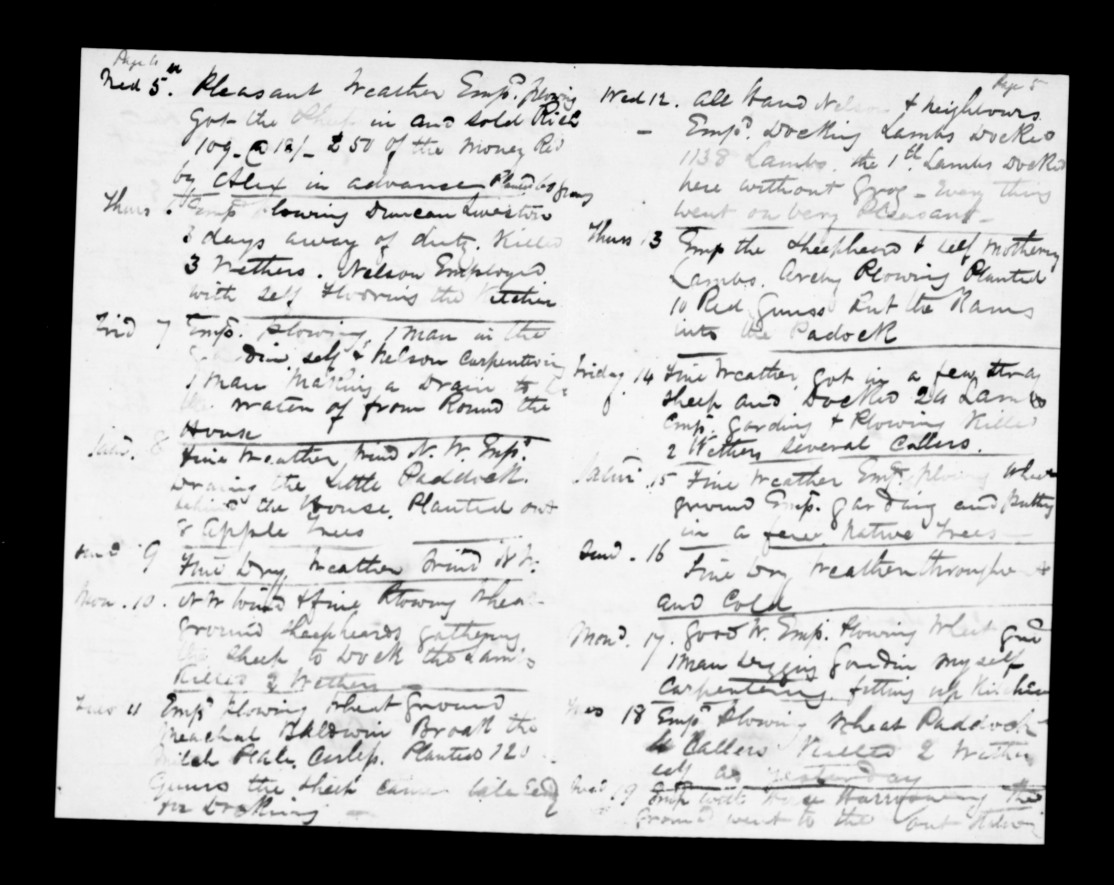 Page 4
Wed 5th. Pleasant Weather Empd. plowing
Got the Sheep in and sold Rich
109 @ 12/- £50 of the money Recd
by Alex in advance Planted 60 frans
Thurs 6 Empd plowing Duncan Liveston
3 days away of duty. Killed
3 Wethers. Nelson Employed
with self Flooring the Kitchen
Frid 7 Empd. plowing, 1 man in the
Gardin self & Nelson Carpentering
1 man Making a Drain to
the waten of from Round the
House
Satd. 8 Fine Weather Wind N.W. Empd.
Draing the Little Paddock.
behind the House. Planted out
8 Apple Trees
Sund 9 Fine Dry Weather Wind N W.
Mon. 10. N W Wind & fine Plowing Wheat
ground Sheepheards gathering
the Sheep to Dock the Lambs
Killed 2 Wethers
Tues 11 Empd plowing wheat ground
Meachal Baldwin Broak the
Milch Plate Planted 120
Gums the Sheep came
for Docking
Page 5
Wed 12. All Hand Nelson & Neighbours
Empd. Docking Lambs Docked
1138 Lambs. the 1th Lambs Docked
here without Grog - Every thing
went on very Pleasant -
Thurs 13 Emp the Sheepheard & self Mothering
Lambs. Archy Plowing Planted
10 Red Gums Put the Rams
into the Padock
Friday 14 Fine Weather got in a few Stray
Sheep and Docked 24 Lambs
Empd. Garding & Plowing Killed
2 Wethers Several Callers.
Satur. 15 Fine Weather Empd plowing Wheat
ground Empd. garding and putting
in a few Native Trees -
Sund. 16 Fine Dry Weather throughout
and Cold
Mond. 17. Good W. Empd. Plowing Wheat
1 man Digging Gardin myself
Carpentering. fitting up Kitchen
Tues 18 Empd Plowing Wheat Paddock
Callers Killed 2 Wethers
self as yesterday
Wed 19 Emp with Harrowing the
ground went to the out